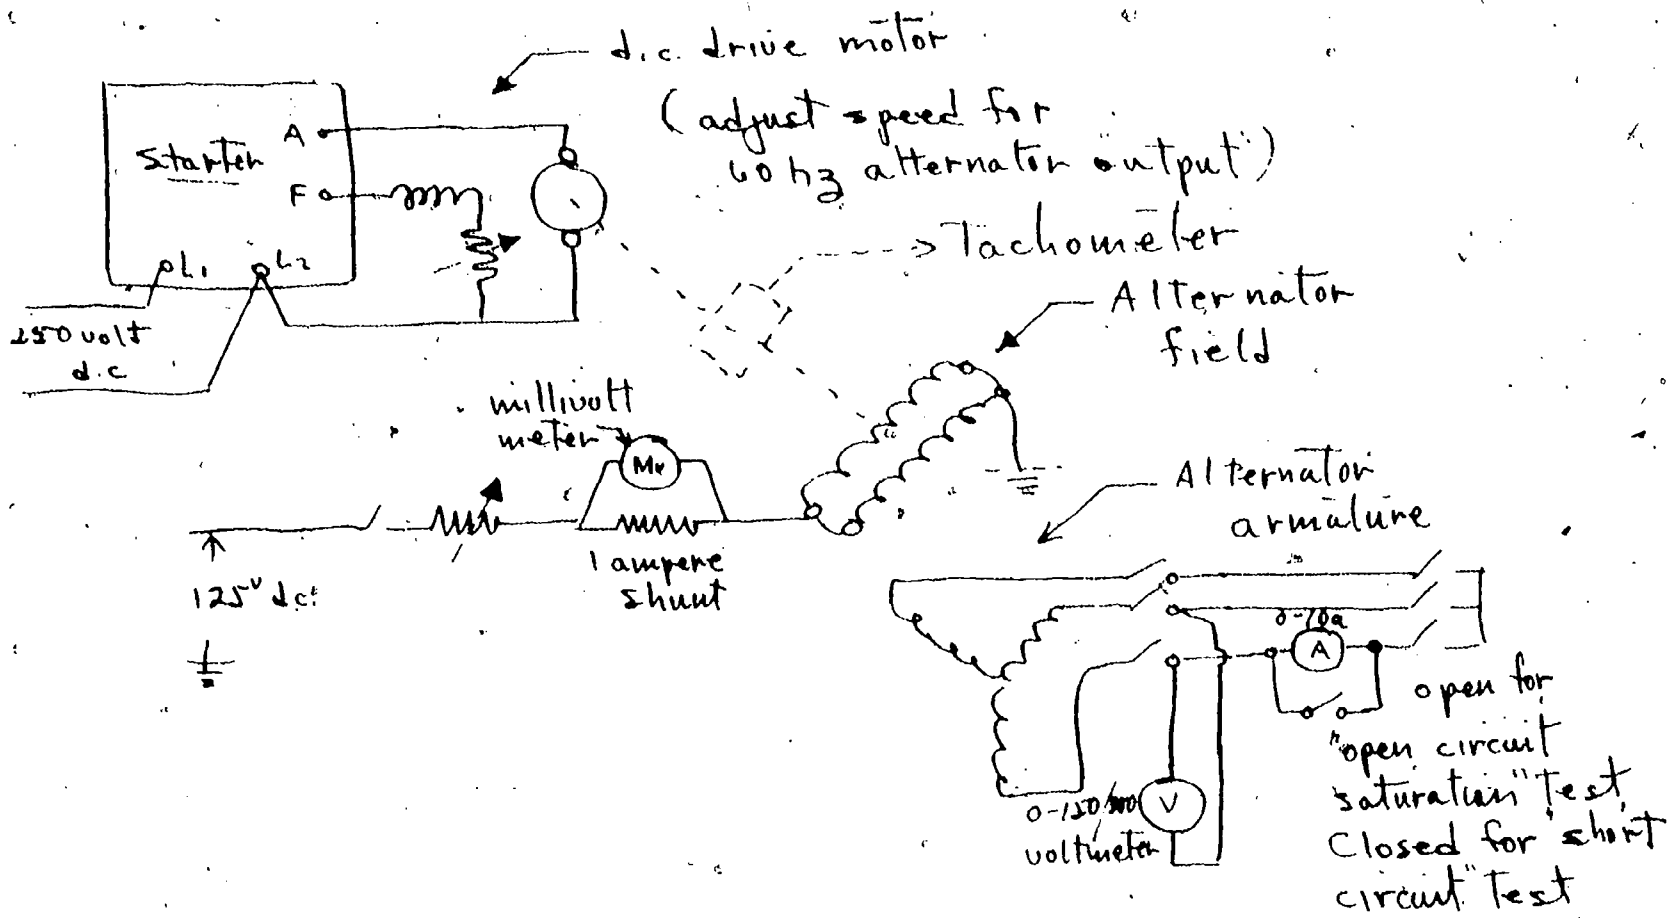 d.c. drive motor
(adjust speed for
60 hz alternator output)
Starter
A
F
L1
L2
250 volt
d.c
Tachometer
Alternator
field
millivolt
meter
Mv
1 ampere
shunt
125v d.c.
Alternator
armature
A
V
voltmeter
open for
"open circuit
saturation" test
Closed for "short
circuit" Test